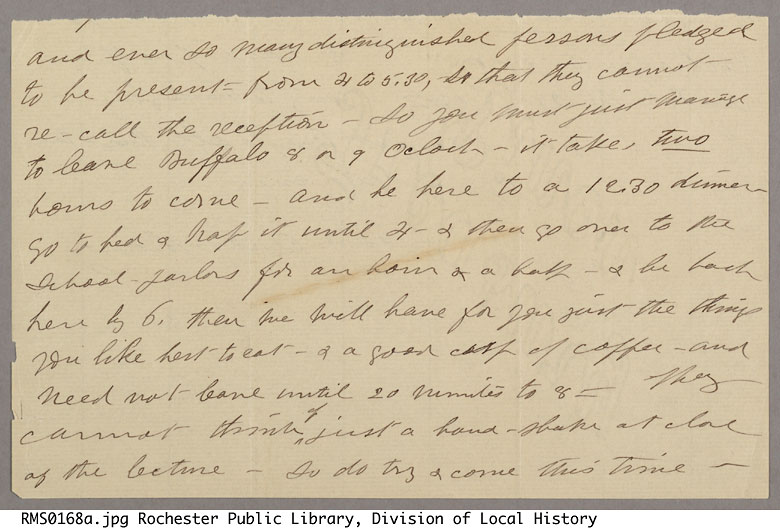 and ever so many distinguished persons pledged
to be present = from 4 to 5.30, so that they cannot
re-call the reception - so you must just manage
to leave Buffalo 8 or 9 Oclock - it takes two
hours to come - and be here to a 12.30 dinner -
go to bed & nap it until 4 - & then go over to the
School-parlors for an hour & a half - & be back
here by 6. then we will have for you just the things
you like best to eat - & a good cup of coffee - and
need not leave until 20 minutes to 8 = They
cannot think of just a hand-shake at close
of the lecture - So do try & come this time -
RMS0168a.jpg Rochester Public Library, Division of Local History